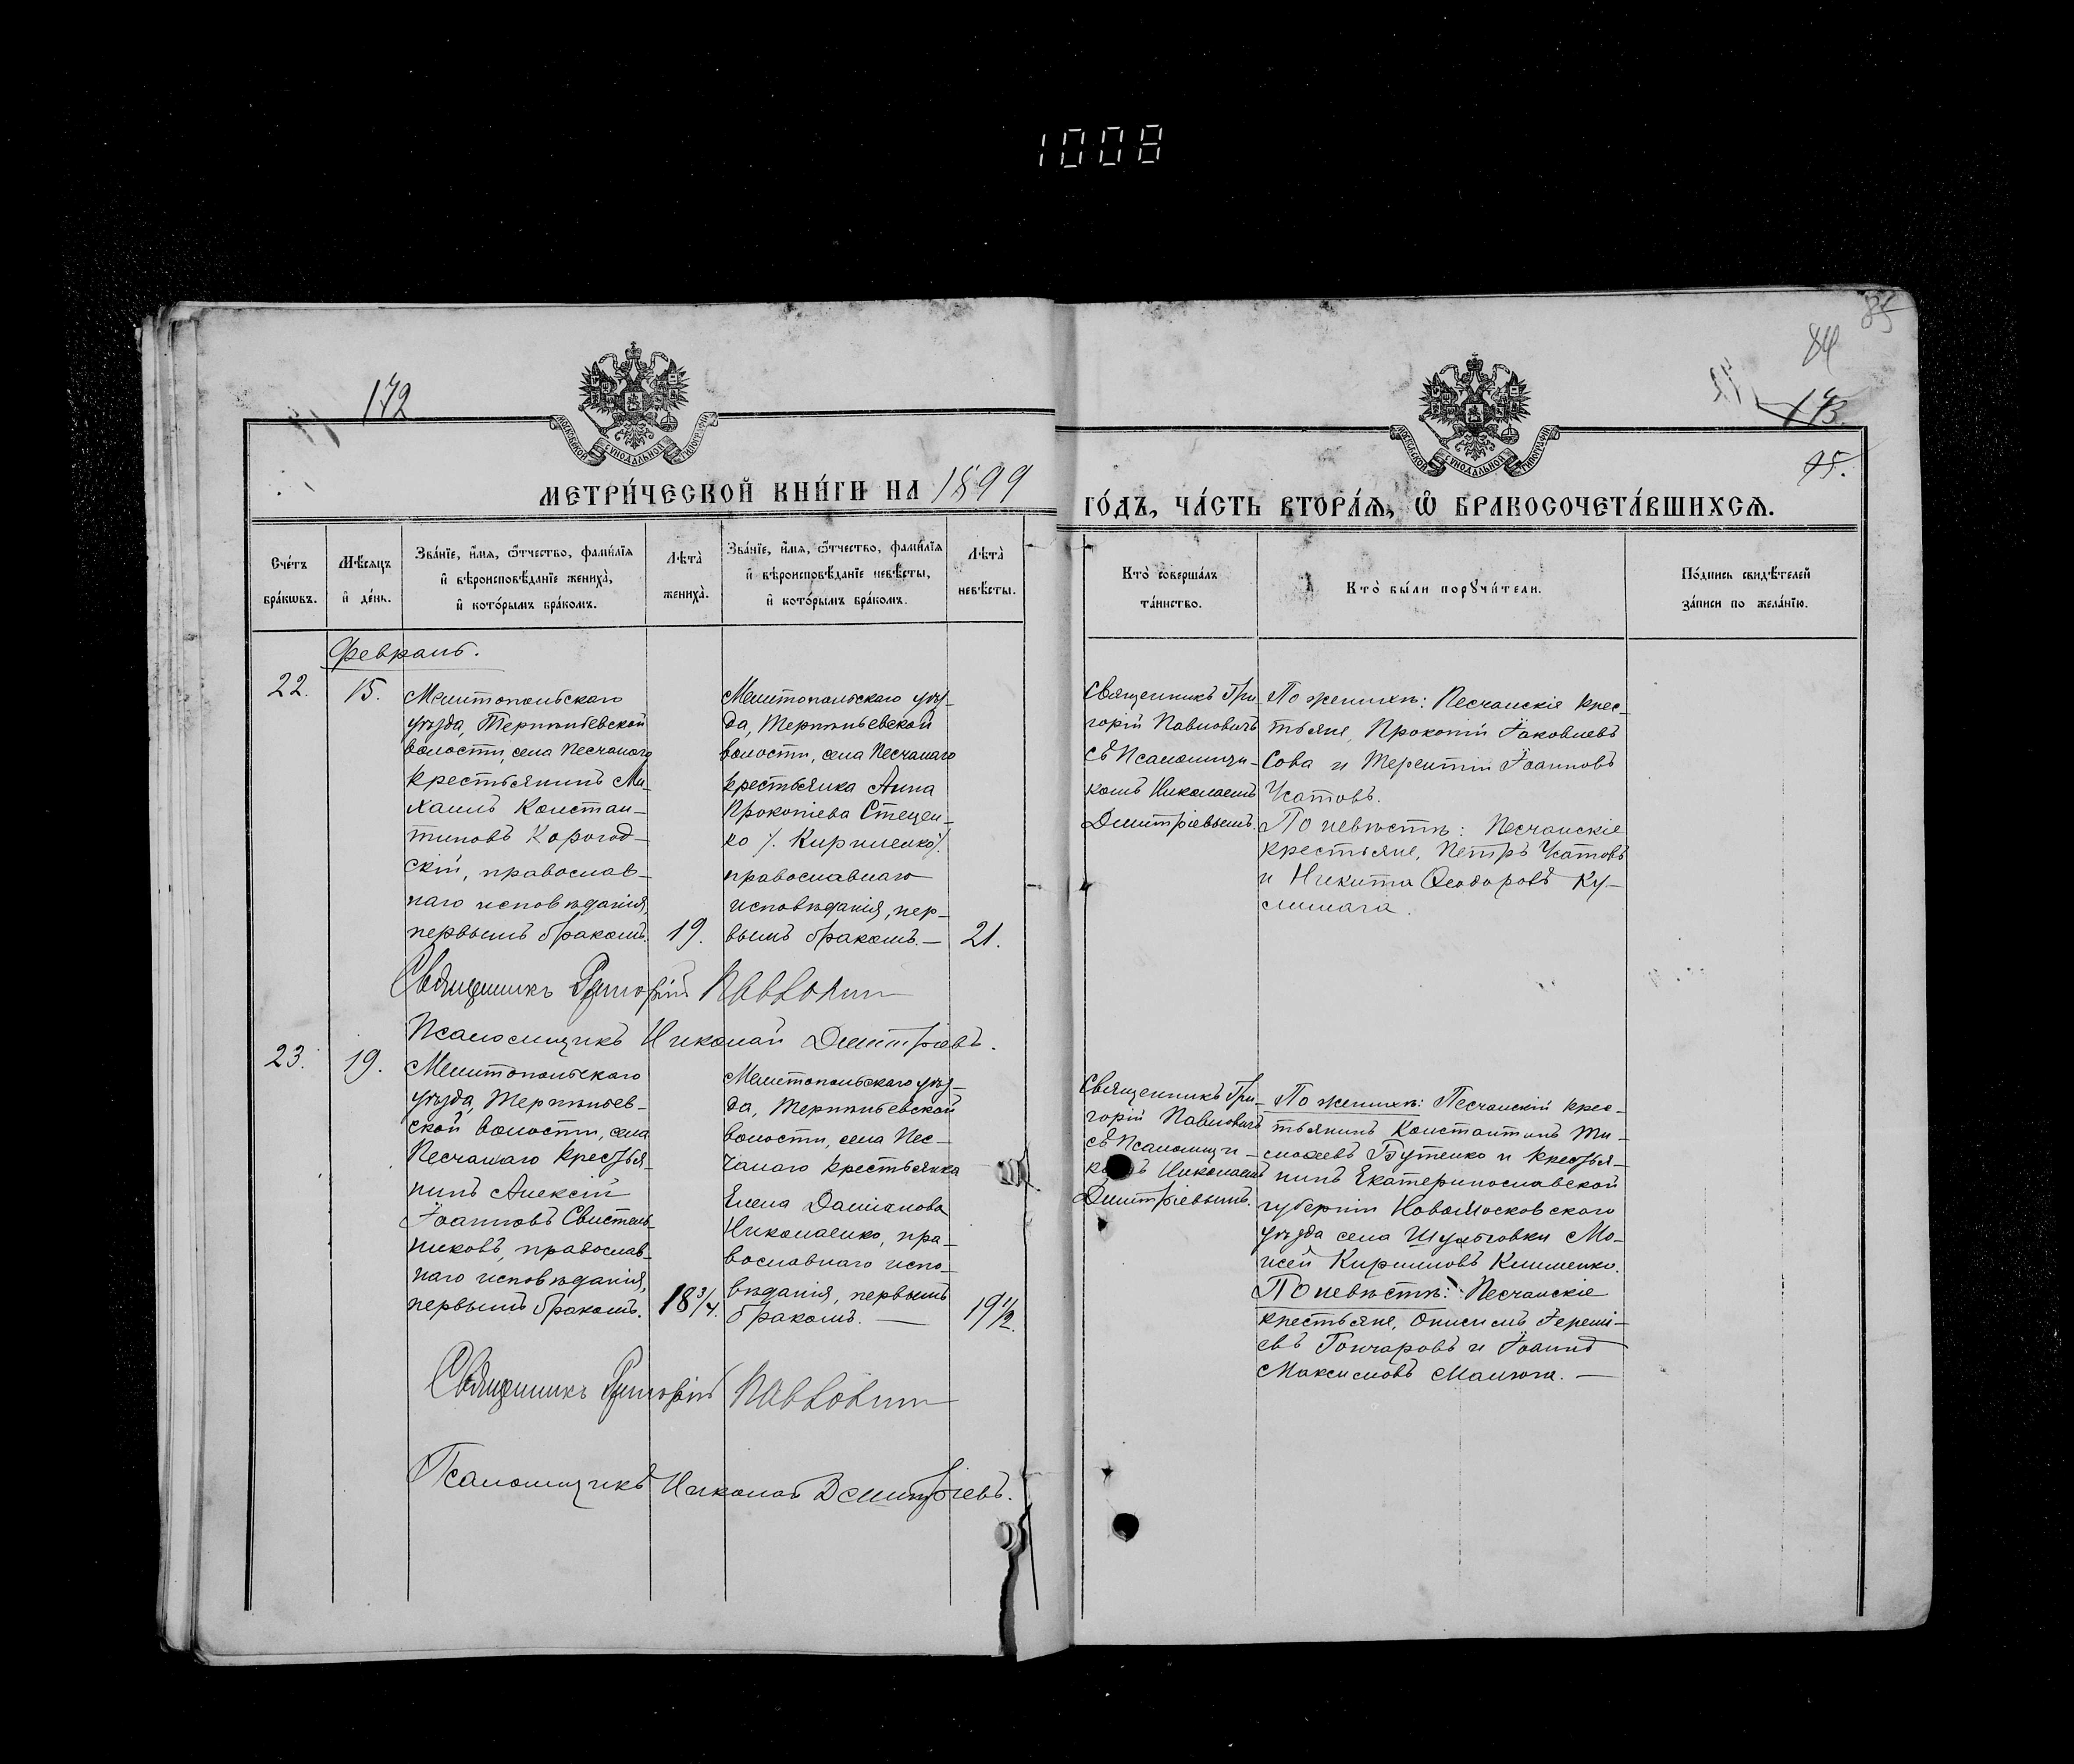 1008
85
84
172
173.
95.
МОСКОВСКОЙ СѴНОДАЛЬНОЙ ТИПОГРАФІИ
МОСКОВСКОЙ СѴНОДАЛЬНОЙ ТИПОГРАФІИ
МЕТРИ́ЧЕСКОЙ КНИ́ГИ НА 1899
ГО́ДЪ, ЧА́СТЬ ВТОРА́Ѧ, Ѽ БРАКОСОЧЕТА́ВШИХСѦ.
Сче́тъ
бра́кѡвъ.
Мѣ́сяцъ
и҆ де́нь.
Зва́нїе, и҆́мѧ, ѻ҆́тчество, фами́лїѧ
и҆ вѣроисповѣ́данїе жениха̀,
и҆ кото́рымъ бра́комъ.
Лѣта̀
жениха̀.
Зва́нїе, и҆́мѧ, ѻ҆́тчество, фами́лїѧ
и҆ вѣроисповѣ́данїе невѣ́сты,
и҆ кото́рымъ бра́комъ.
Лѣта̀
невѣ́сты.
Кто̀ соверша́лъ
та́инство.
Кто̀ бы́ли порꙋчи́тели.
По́дпись свидѣ́телей
за́писи по жела́нїю.
Февраль.
22.
15.
Мелитопольскаго
уѣзда, Терпѣньевской
волости, села Песчанаго
крестьянинъ Ми-
хаилъ Констан-
тиновъ Корогод-
скій, православ-
наго исповѣданія,
первымъ бракомъ.
19.
Мелитопольскаго уѣз-
да, Терпѣньевской
волости, села Песчанаго
крестьянка Анна
Прокопіева Стецен-
ко /. Кириленко /.
православнаго
исповѣданія, пер-
вымъ бракомъ. —
21.
Священникъ Гри-
горій Павловичъ
съ Псаломщи-
комъ Николаемъ
Димитріевымъ.
По женихѣ: Песчанскіе крес-
тьяне, Прокопій Іаковлевъ
Сова и Терентій Іоанновъ
Усатовъ.
По невѣстѣ: Песчанскіе
крестьяне, Петръ Усатовъ
и Никита Ѳеодоровъ Ку-
лишага.
Священникъ Григорій Павловичъ
Псаломщикъ Николай Димитріевъ.
23.
19.
Мелитопольскаго
уѣзда, Терпѣньев-
ской волости, села
Песчанаго крестья-
нинъ Алексій
Іоанновъ Свистель-
никовъ, православ-
наго исповѣданія,
первымъ бракомъ.
18 3/4.
Мелитопольскаго уѣз-
да, Терпѣньевской
волости, села Пес-
чанаго крестьянка
Елена Даміанова
Николаенко, пра-
вославнаго испо-
вѣданія, первымъ
бракомъ. —
19 1/2.
Священникъ Гри-
горій Павловичъ
съ Псаломщи-
комъ Николаемъ
Димитріевымъ.
По женихѣ: Песчанскій крес-
тьянинъ Константинъ Ти-
моѳеевъ Бутенко и крестья-
нинъ Екатеринославской
губерніи Новомосковскаго
уѣзда села Шульговки Мо-
исей Кирилловъ Клименко.
По невѣстѣ: Песчанскіе
крестьяне, Онисимъ Іеремі-
евъ Гончаровъ и Іоаннъ
Максимовъ Малюга. —
Священникъ Григорій Павловичъ
Псаломщикъ Николай Димитріевъ.